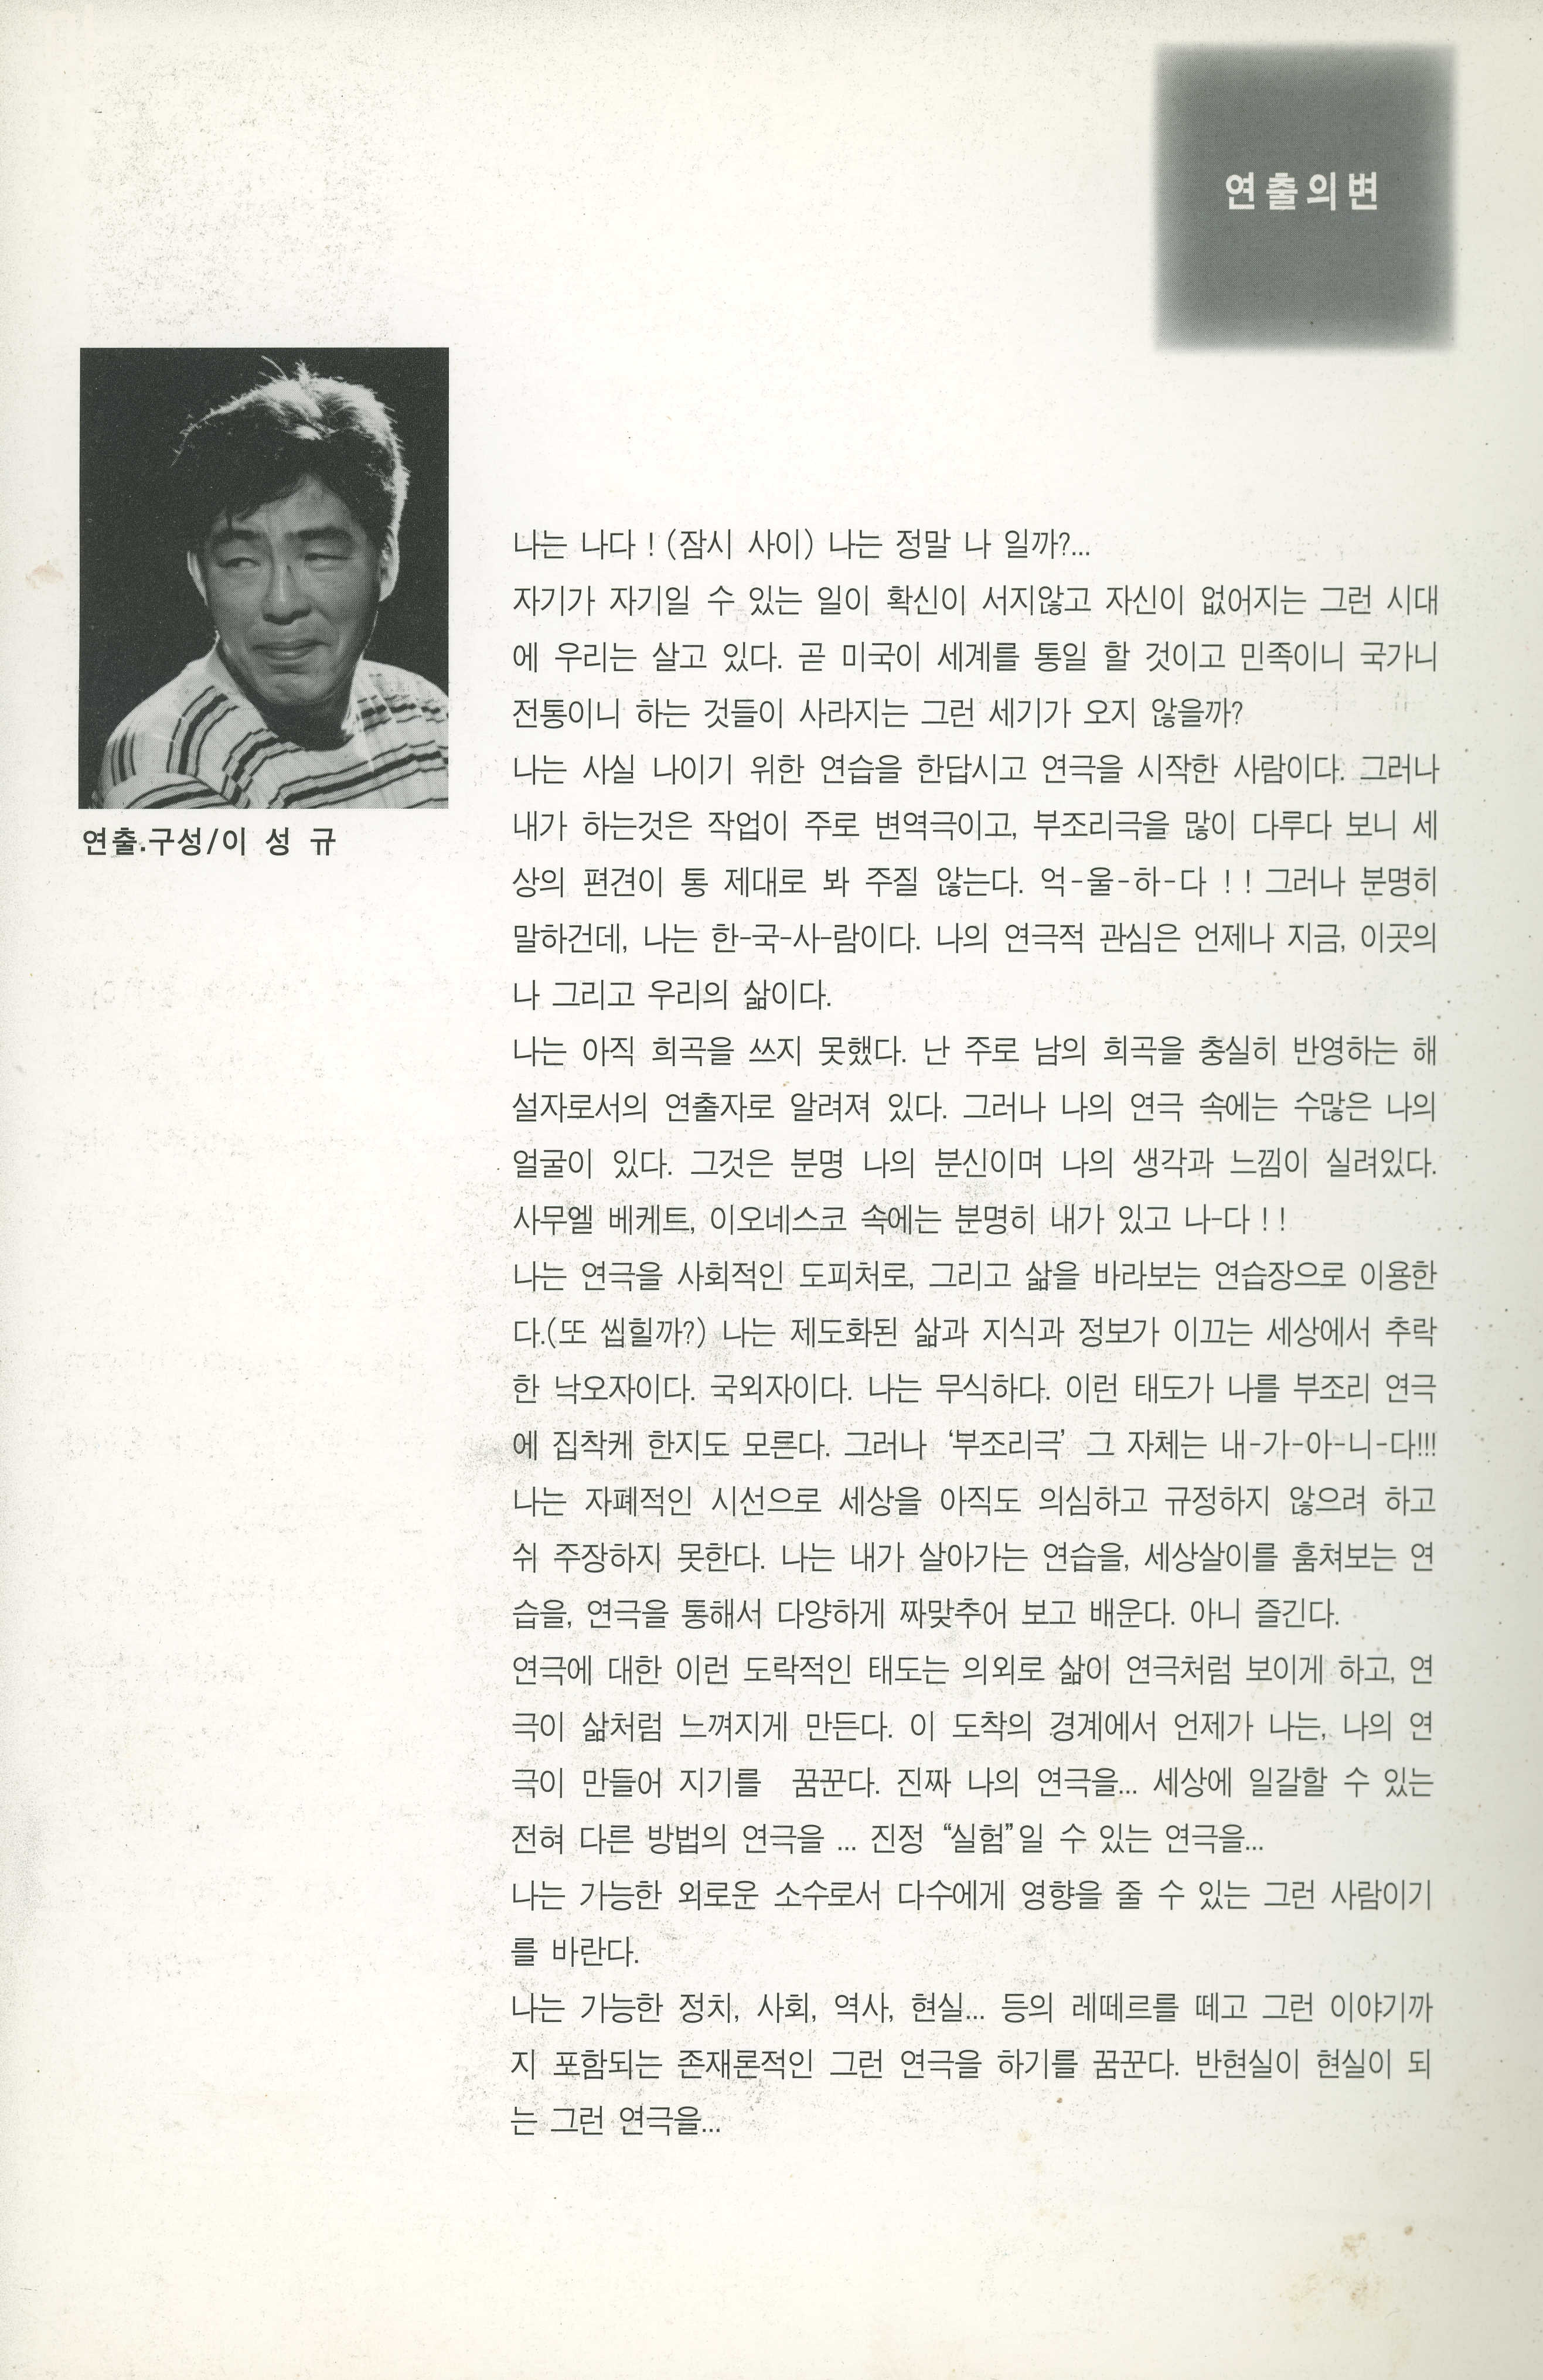 연출의변
연출.구성/이 성 규
나는 나다 ! (잠시 사이) 나는 정말 나 일까?...
자기가 자기일 수 있는 일이 확신이 서지않고 자신이 없어지는 그런 시대
에 우리는 살고 있다. 곧 미국이 세계를 통일 할 것이고 민족이니 국가니
전통이니 하는 것들이 사라지는 그런 세기가 오지 않을까?
나는 사실 나이기 위한 연습을 한답시고 연극을 시작한 사람이다. 그러나
내가 하는것은 작업이 주로 변역극이고, 부조리극을 많이 다루다 보니 세
상의 편견이 통 제대로 봐 주질 않는다. 억-울-하-다 ! ! 그러나 분명히
말하건데, 나는 한-국-사-람이다. 나의 연극적 관심은 언제나 지금, 이곳의
나 그리고 우리의 삶이다.
나는 아직 희곡을 쓰지 못했다. 난 주로 남의 희곡을 충실히 반영하는 해
설자로서의 연출자로 알려져 있다. 그러나 나의 연극 속에는 수많은 나의
얼굴이 있다. 그것은 분명 나의 분신이며 나의 생각과 느낌이 실려있다.
사무엘 베케트, 이오네스코 속에는 분명히 내가 있고 나-다 ! !
나는 연극을 사회적인 도피처로, 그리고 삶을 바라보는 연습장으로 이용한
다.(또 씹힐까?) 나는 제도화된 삶과 지식과 정보가 이끄는 세상에서 추락
한 낙오자이다. 국외자이다. 나는 무식하다. 이런 태도가 나를 부조리 연극
에 집착케 한지도 모른다. 그러나 ‘부조리극’ 그 자체는 내-가-아-니-다!!!
나는 자폐적인 시선으로 세상을 아직도 의심하고 규정하지 않으려 하고
쉬 주장하지 못한다. 나는 내가 살아가는 연습을, 세상살이를 훔쳐보는 연
습을, 연극을 통해서 다양하게 짜맞추어 보고 배운다. 아니 즐긴다.
연극에 대한 이런 도락적인 태도는 의외로 삶이 연극처럼 보이게 하고, 연
극이 삶처럼 느껴지게 만든다. 이 도착의 경계에서 언제가 나는, 나의 연
극이 만들어 지기를 꿈꾼다. 진짜 나의 연극을... 세상에 일갈할 수 있는
전혀 다른 방법의 연극을 ... 진정 “실험”일 수 있는 연극을...
나는 가능한 외로운 소수로서 다수에게 영향을 줄 수 있는 그런 사람이기
를 바란다.
나는 가능한 정치, 사회, 역사, 현실... 등의 레떼르를 떼고 그런 이야기까
지 포함되는 존재론적인 그런 연극을 하기를 꿈꾼다. 반현실이 현실이 되
는 그런 연극을...